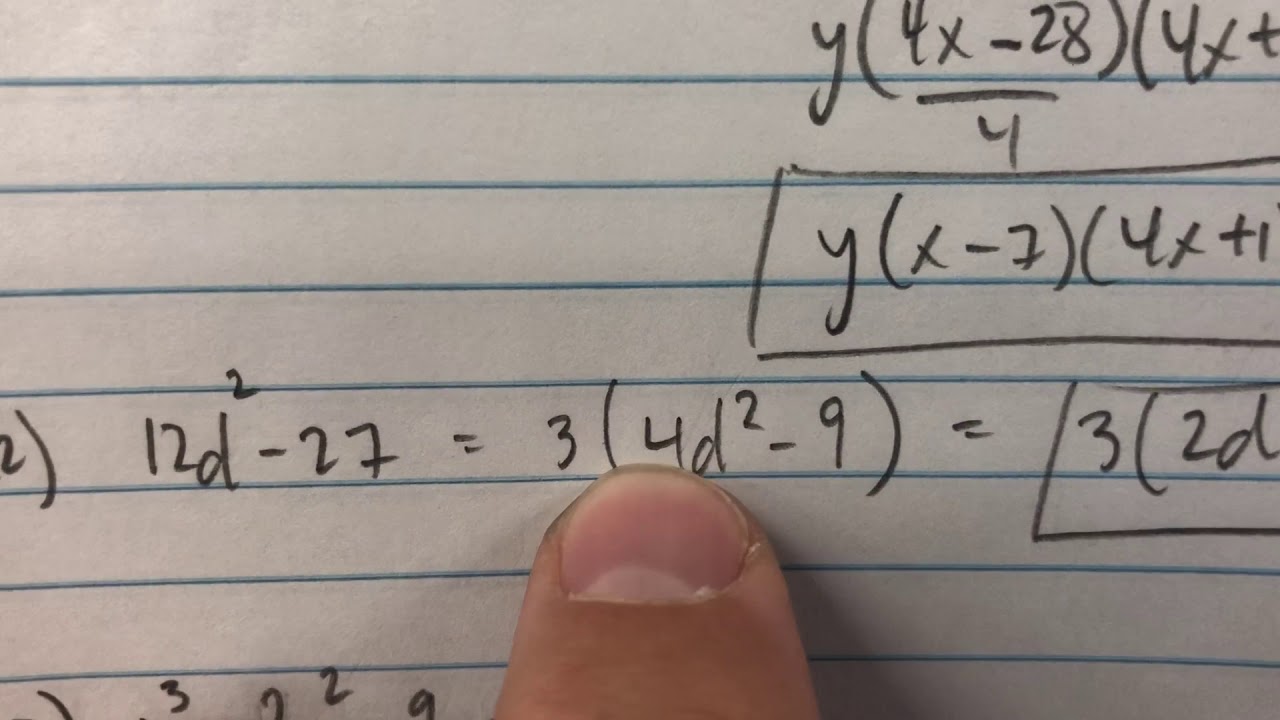 y(4x-28)(4x+
4
y(x-7)(4x+1
2) 12d²-27 = 3(4d²-9) = 3(2d